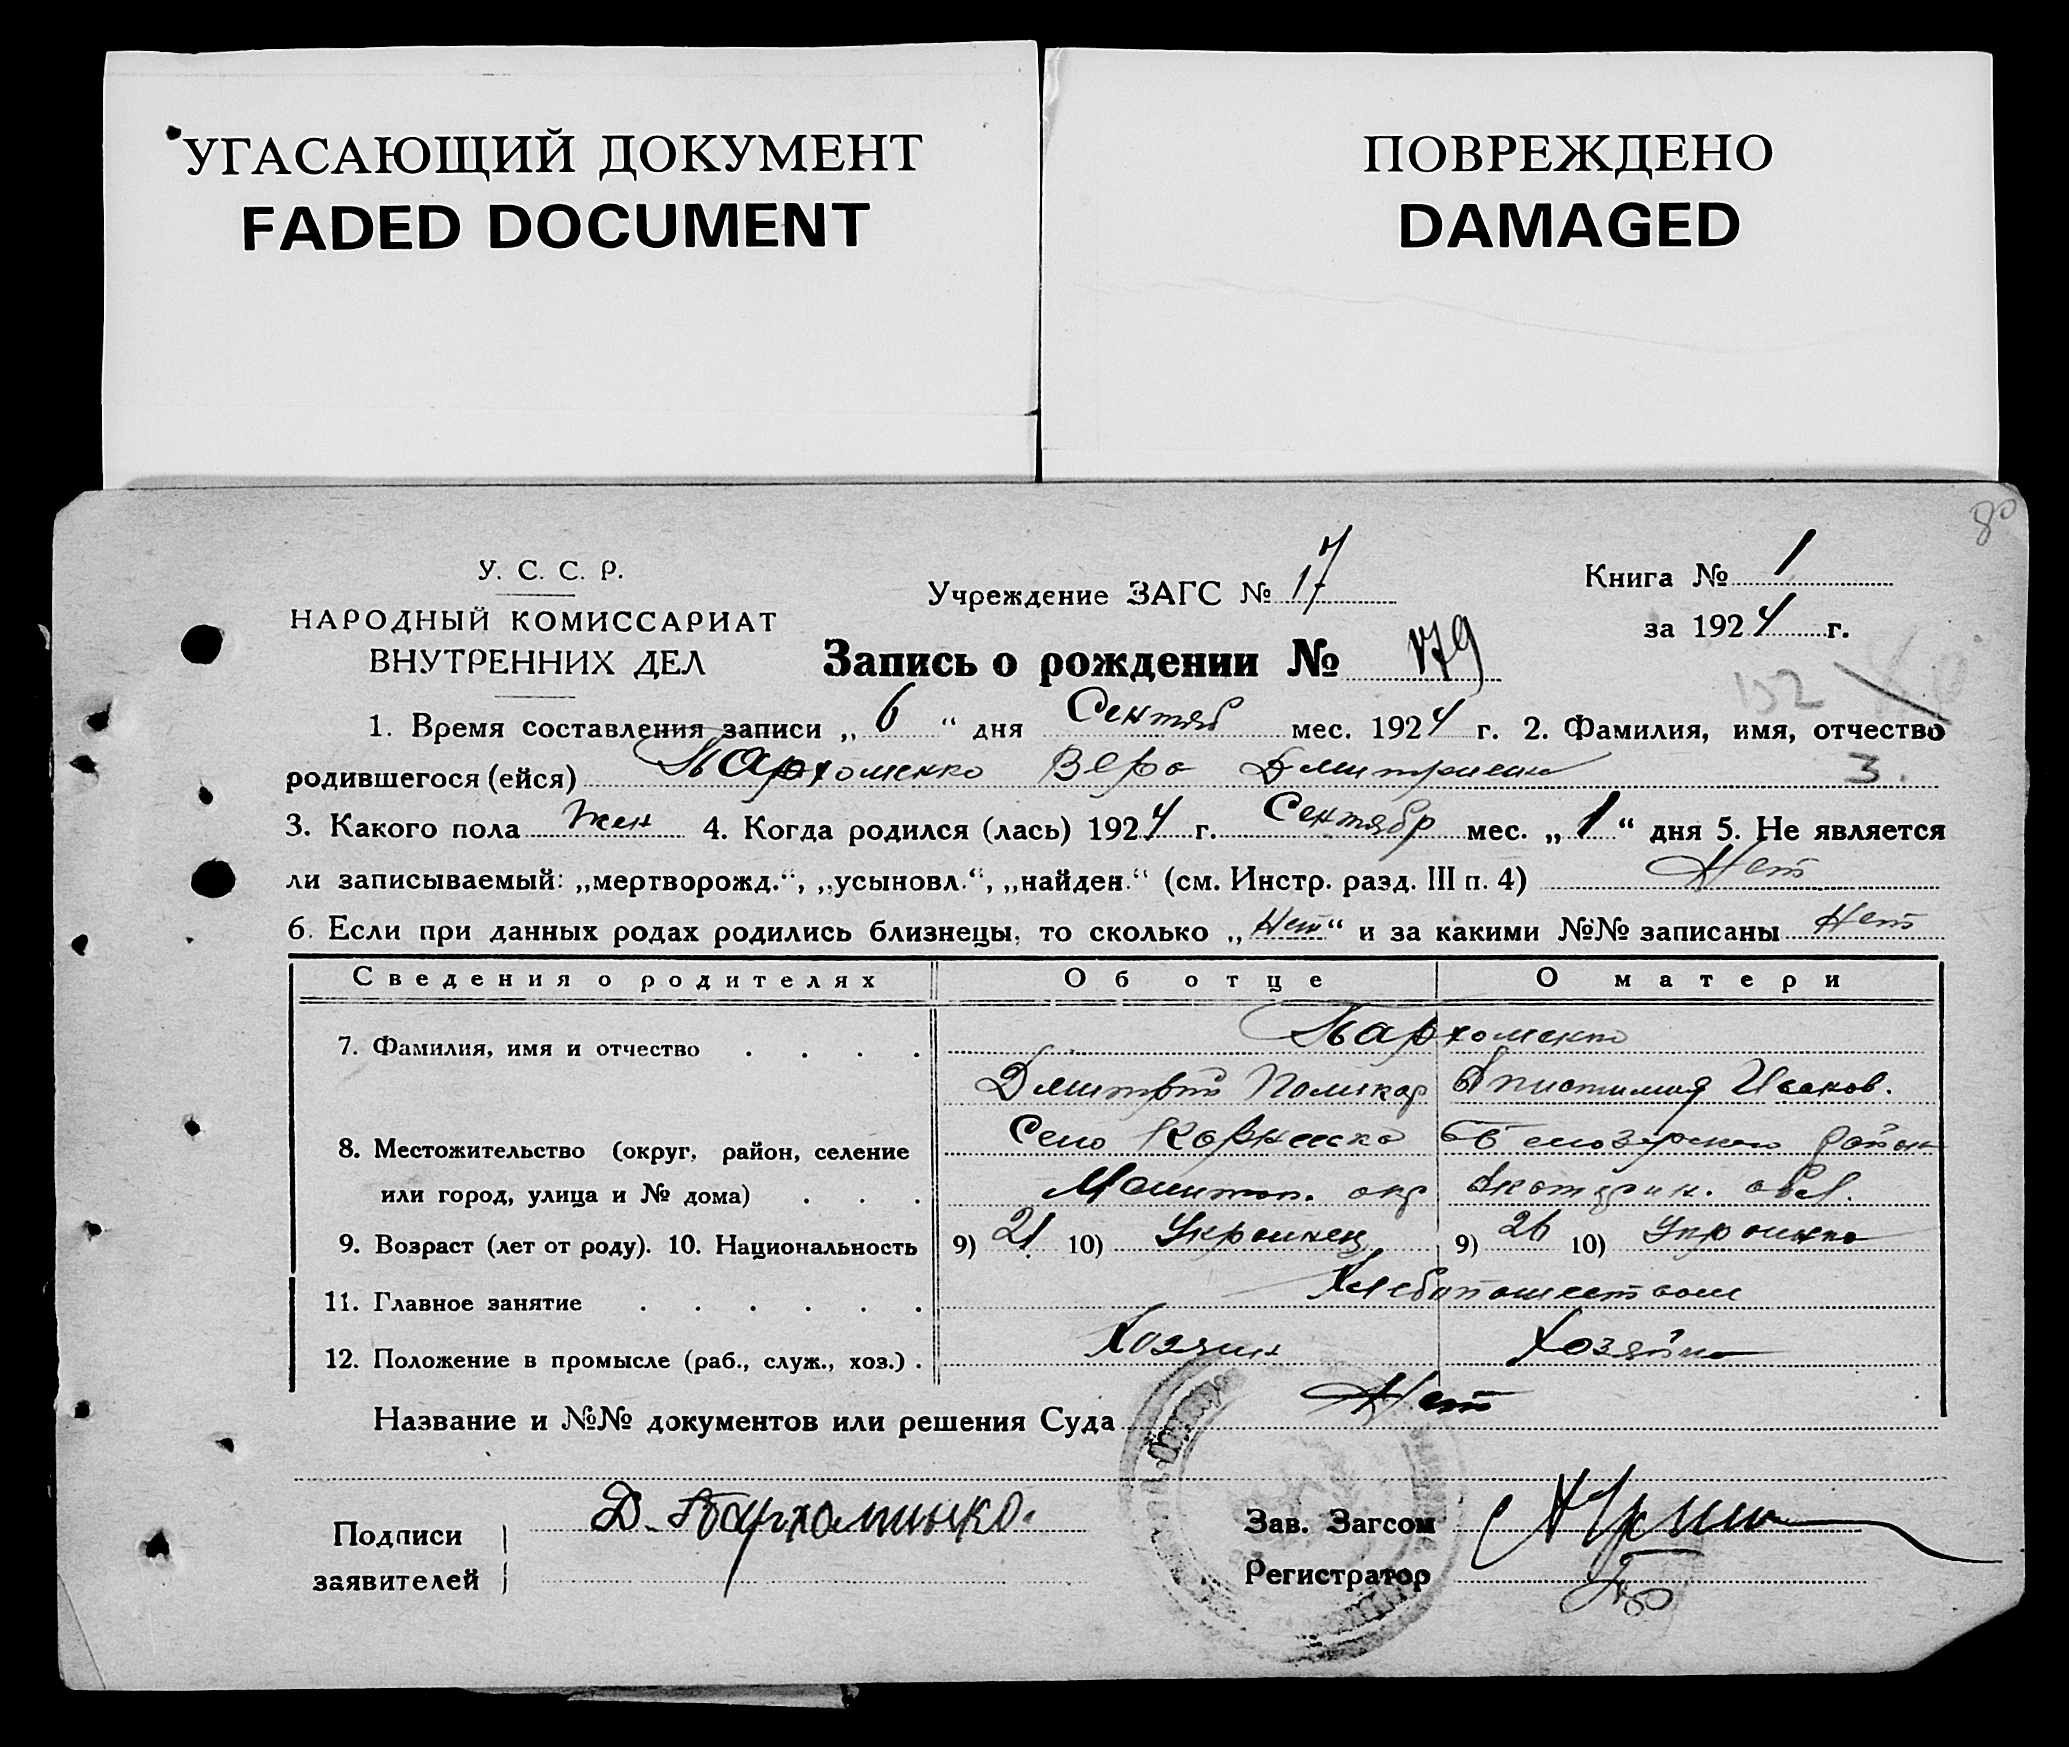 УГАСАЮЩИЙ ДОКУМЕНТ
FADED DOCUMENT
ПОВРЕЖДЕНО
DAMAGED
80
У. С. С. Р.
НАРОДНЫЙ КОМИССАРИАТ
ВНУТРЕННИХ ДЕЛ
Учреждение ЗАГС № 17
Книга № 1
за 1924 г.
Запись о рождении № 179
152
1. Время составления записи „ 6 “ дня Сентяб мес. 1924 г. 2. Фамилия, имя, отчество
родившегося (ейся) Пархоменко Вера Дмитриевна 3.
3. Какого пола жен 4. Когда родился (лась) 1924 г. Сентябр мес. „ 1 “ дня 5. Не является
ли записываемый: „мертворожд.“, „усыновл.“, „найден.“ (см. Инстр. разд. III п. 4) Нет
6. Если при данных родах родились близнецы, то сколько „ Нет “ и за какими №№ записаны Нет
Сведения о родителях Об отце О матери
7. Фамилия, имя и отчество Пархоменко
Дмитрий Поликар
8. Местожительство (округ, район, селение Село Белозерского район
или город, улица и № дома) Мелитоп. окр Екатерин. обл.
9. Возраст (лет от роду). 10. Национальность 9) 21 10) Украинец 9) 26 10) Украинка
11. Главное занятие Хлебопашеством
12. Положение в промысле (раб., служ., хоз.) Хозяин Хозяйка
Название и №№ документов или решения Суда Нет
Подписи Д. Пархоминько.
заявителей
Зав. Загсом
Регистратор